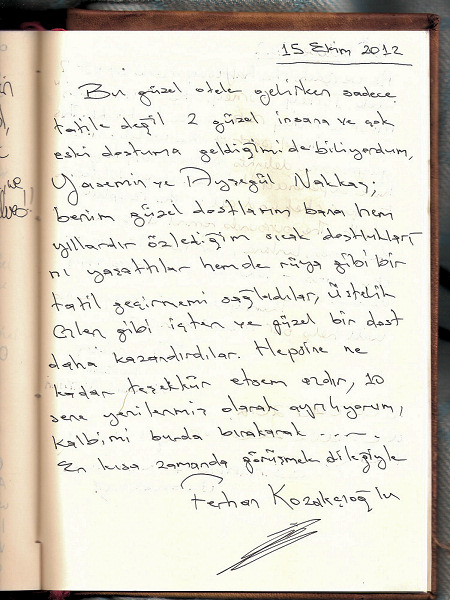 15 Ekim 2012
Bu güzel otele gelirken sadece
tatile değil 2 güzel insana ve çok
eski dostuma geldiğimi de biliyordum,
Yasemin ve Ayşegül Nakkaş;
benim güzel dostlarım bana hem
yıllardır özlediğim sıcak dostlukları
nı yaşattılar hemde rüya gibi bir
tatil geçirmemi sağladılar, üstelik
gibi içten ve güzel bir dost
daha kazandırdılar. Hepsine ne
kadar teşekkür etsem azdır, 10
sene yenilenmiş olarak ayrılıyorum,
kalbimi burda bırakarak .....
En kısa zamanda görüşmek dileğiyle
Ferhan Kozakçıoğlu